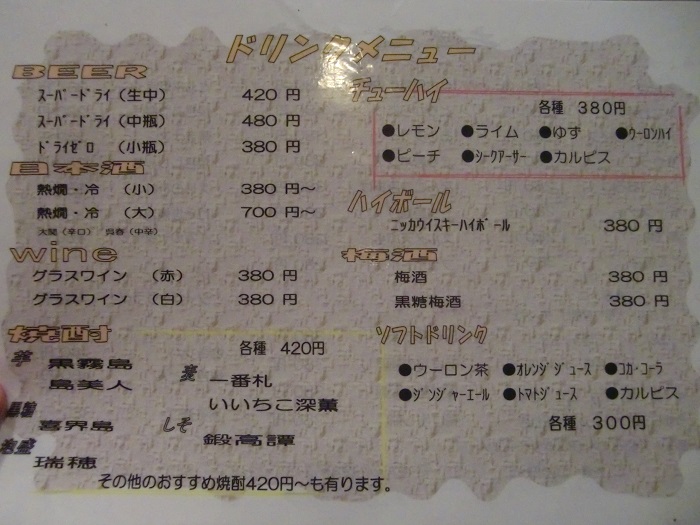 ドリンクメニュー
BEER
ｽｰﾊﾟｰﾄﾞﾗｲ（生中） 420 円
ｽｰﾊﾟｰﾄﾞﾗｲ（中瓶） 480 円
ﾄﾞﾗｲｾﾞﾛ （小瓶） 380 円
日本酒
熱燗・冷 （小） 380 円～
熱燗・冷 （大） 700 円～
大関（辛口） 呉春（中辛）
wine
グラスワイン （赤） 380 円
グラスワイン （白） 380 円
焼酎
各種 420円
芋 黒霧島
島美人
麦 一番札
いいちこ深薫
黒糖 喜界島
しそ 鍛高譚
泡盛 瑞穂
その他のおすすめ焼酎420円～も有ります。
チューハイ
各種 380円
●レモン ●ライム ●ゆず ●ｳｰﾛﾝﾊｲ
●ピーチ ●ｼｰｸｱｰｻｰ ●カルピス
ハイボール
ﾆｯｶｳｲｽｷｰﾊｲﾎﾞｰﾙ 380 円
梅酒
梅酒 380 円
黒糖梅酒 380 円
ソフトドリンク
●ウーロン茶 ●ｵﾚﾝｼﾞｼﾞｭｰｽ ●ｺｶ･ｺｰﾗ
●ｼﾞﾝｼﾞｬｰｴｰﾙ ●ﾄﾏﾄｼﾞｭｰｽ ●カルピス
各種 300円